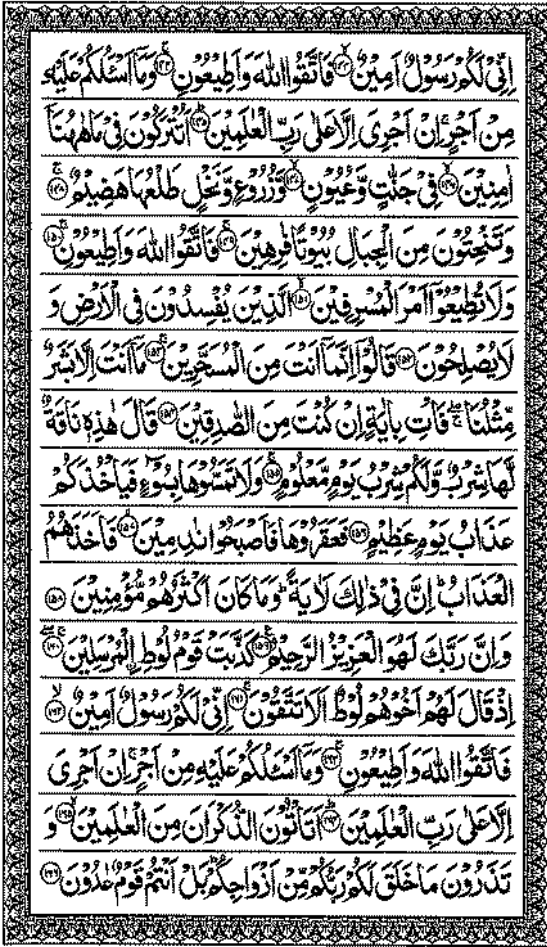 اِنِّیْ لَكُمْ رَسُوْلٌ اَمِیْنٌۙ۝۱۴۳ فَاتَّقُوا اللّٰهَ وَاَطِیْعُوْنِۚ۝۱۴۴ وَمَاۤ اَسْئَلُكُمْ عَلَیْهِ
مِنْ اَجْرٍۚ اِنْ اَجْرِیَ اِلَّا عَلٰی رَبِّ الْعٰلَمِیْنَؕ۝۱۴۵ اَتُتْرَكُوْنَ فِیْ مَا هٰهُنَاۤ
اٰمِنِیْنَۙ۝۱۴۶ فِیْ جَنّٰتٍ وَّعُیُوْنٍۙ۝۱۴۷ وَّزُرُوْعٍ وَّنَخْلٍ طَلْعُهَا هَضِیْمٌۚ۝۱۴۸
وَتَنْحِتُوْنَ مِنَ الْجِبَالِ بُیُوْتًا فٰرِهِیْنَۚ۝۱۴۹ فَاتَّقُوا اللّٰهَ وَاَطِیْعُوْنِۚ۝۱۵۰
وَلَا تُطِیْعُوْۤا اَمْرَ الْمُسْرِفِیْنَۙ۝۱۵۱ الَّذِیْنَ یُفْسِدُوْنَ فِی الْاَرْضِ وَ
لَا یُصْلِحُوْنَ۝۱۵۲ قَالُوْۤا اِنَّمَاۤ اَنْتَ مِنَ الْمُسَحَّرِیْنَۚ۝۱۵۳ مَاۤ اَنْتَ اِلَّا بَشَرٌ
مِّثْلُنَا ۖۚ فَاْتِ بِاٰیَةٍ اِنْ كُنْتَ مِنَ الصّٰدِقِیْنَ۝۱۵۴ قَالَ هٰذِهٖ نَاقَةٌ
لَّهَا شِرْبٌ وَّلَكُمْ شِرْبُ یَوْمٍ مَّعْلُوْمٍۚ۝۱۵۵ وَلَا تَمَسُّوْهَا بِسُوْٓءٍ فَیَاْخُذَكُمْ
عَذَابُ یَوْمٍ عَظِیْمٍ۝۱۵۶ فَعَقَرُوْهَا فَاَصْبَحُوْا نٰدِمِیْنَۙ۝۱۵۷ فَاَخَذَهُمُ
الْعَذَابُؕ اِنَّ فِیْ ذٰلِكَ لَاٰیَةًؕ وَمَا كَانَ اَكْثَرُهُمْ مُّؤْمِنِیْنَ۝۱۵۸
وَاِنَّ رَبَّكَ لَهُوَ الْعَزِیْزُ الرَّحِیْمُ۝۱۵۹ كَذَّبَتْ قَوْمُ لُوْطِ ِ۟الْمُرْسَلِیْنَۚۖ۝۱۶۰
اِذْ قَالَ لَهُمْ اَخُوْهُمْ لُوْطٌ اَلَا تَتَّقُوْنَۚ۝۱۶۱ اِنِّیْ لَكُمْ رَسُوْلٌ اَمِیْنٌۙ۝۱۶۲
فَاتَّقُوا اللّٰهَ وَاَطِیْعُوْنِۚ۝۱۶۳ وَمَاۤ اَسْئَلُكُمْ عَلَیْهِ مِنْ اَجْرٍۚ اِنْ اَجْرِیَ
اِلَّا عَلٰی رَبِّ الْعٰلَمِیْنَؕ۝۱۶۴ اَتَاْتُوْنَ الذُّكْرَانَ مِنَ الْعٰلَمِیْنَۙ۝۱۶۵ وَ
تَذَرُوْنَ مَا خَلَقَ لَكُمْ رَبُّكُمْ مِّنْ اَزْوَاجِكُمْؕ بَلْ اَنْتُمْ قَوْمٌ عٰدُوْنَ۝۱۶۶